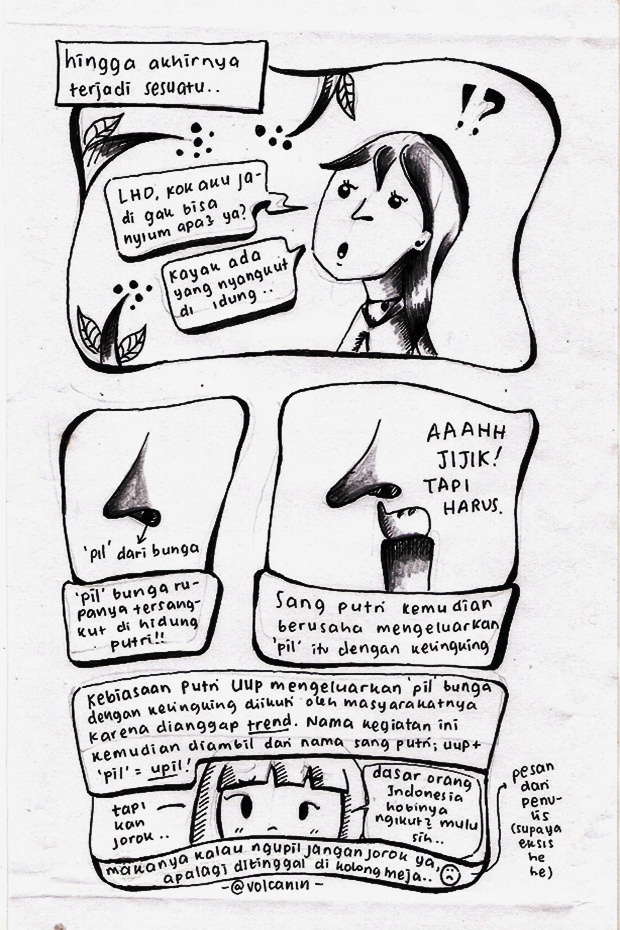 hingga akhirnya
terjadi sesuatu..
!?
LHO, KOK aku ja-
di gak bisa
nyium apa2 ya?
Kayak ada
yang nyangkut
di idung..
'pil' dari bunga
'pil' bunga ru-
panya tersang-
kut di hidung
putri!!
AAAHH
JIJIK!
TAPI
HARUS.
Sang putri kemudian
berusaha mengeluarkan
'pil' itu dengan kelingking
Kebiasaan Putri UUP mengeluarkan 'pil' bunga
dengan kelingking diikuti oleh masyarakatnya
karena dianggap trend. Nama kegiatan ini
kemudian diambil dari nama sang putri; uup+
'pil' = upil!
tapi
kan
jorok..
dasar orang
Indonesia
hobinya
ngikut2 mulu
sih..
makanya kalau ngupil jangan jorok ya,
apalagi ditinggal di kolong meja..
-@volcanin-
pesan
dari
penu-
lis
(supaya
eksis
he
he)